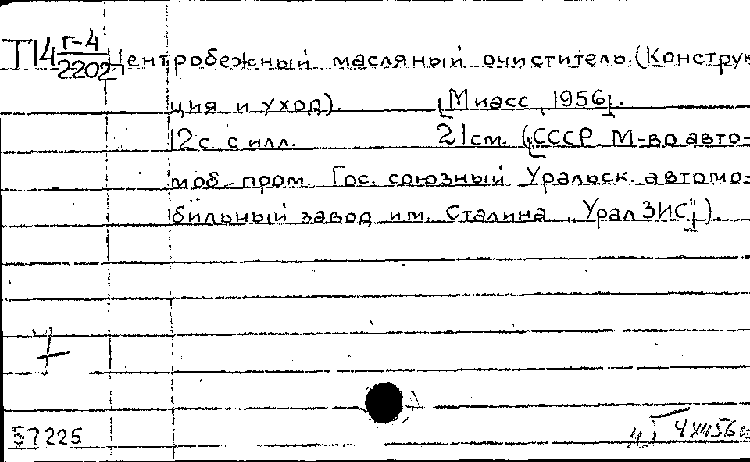 П14 г-4/2202 Центробежный масляный очиститель. (Конструк
ция и уход). [Миасс, 1956].
12с с илл. 21см. (СССР М-во авто-
моб. пром. Гос. союзный Уральск. автомо-
бильный завод им. Сталина „УралЗИС").
57225